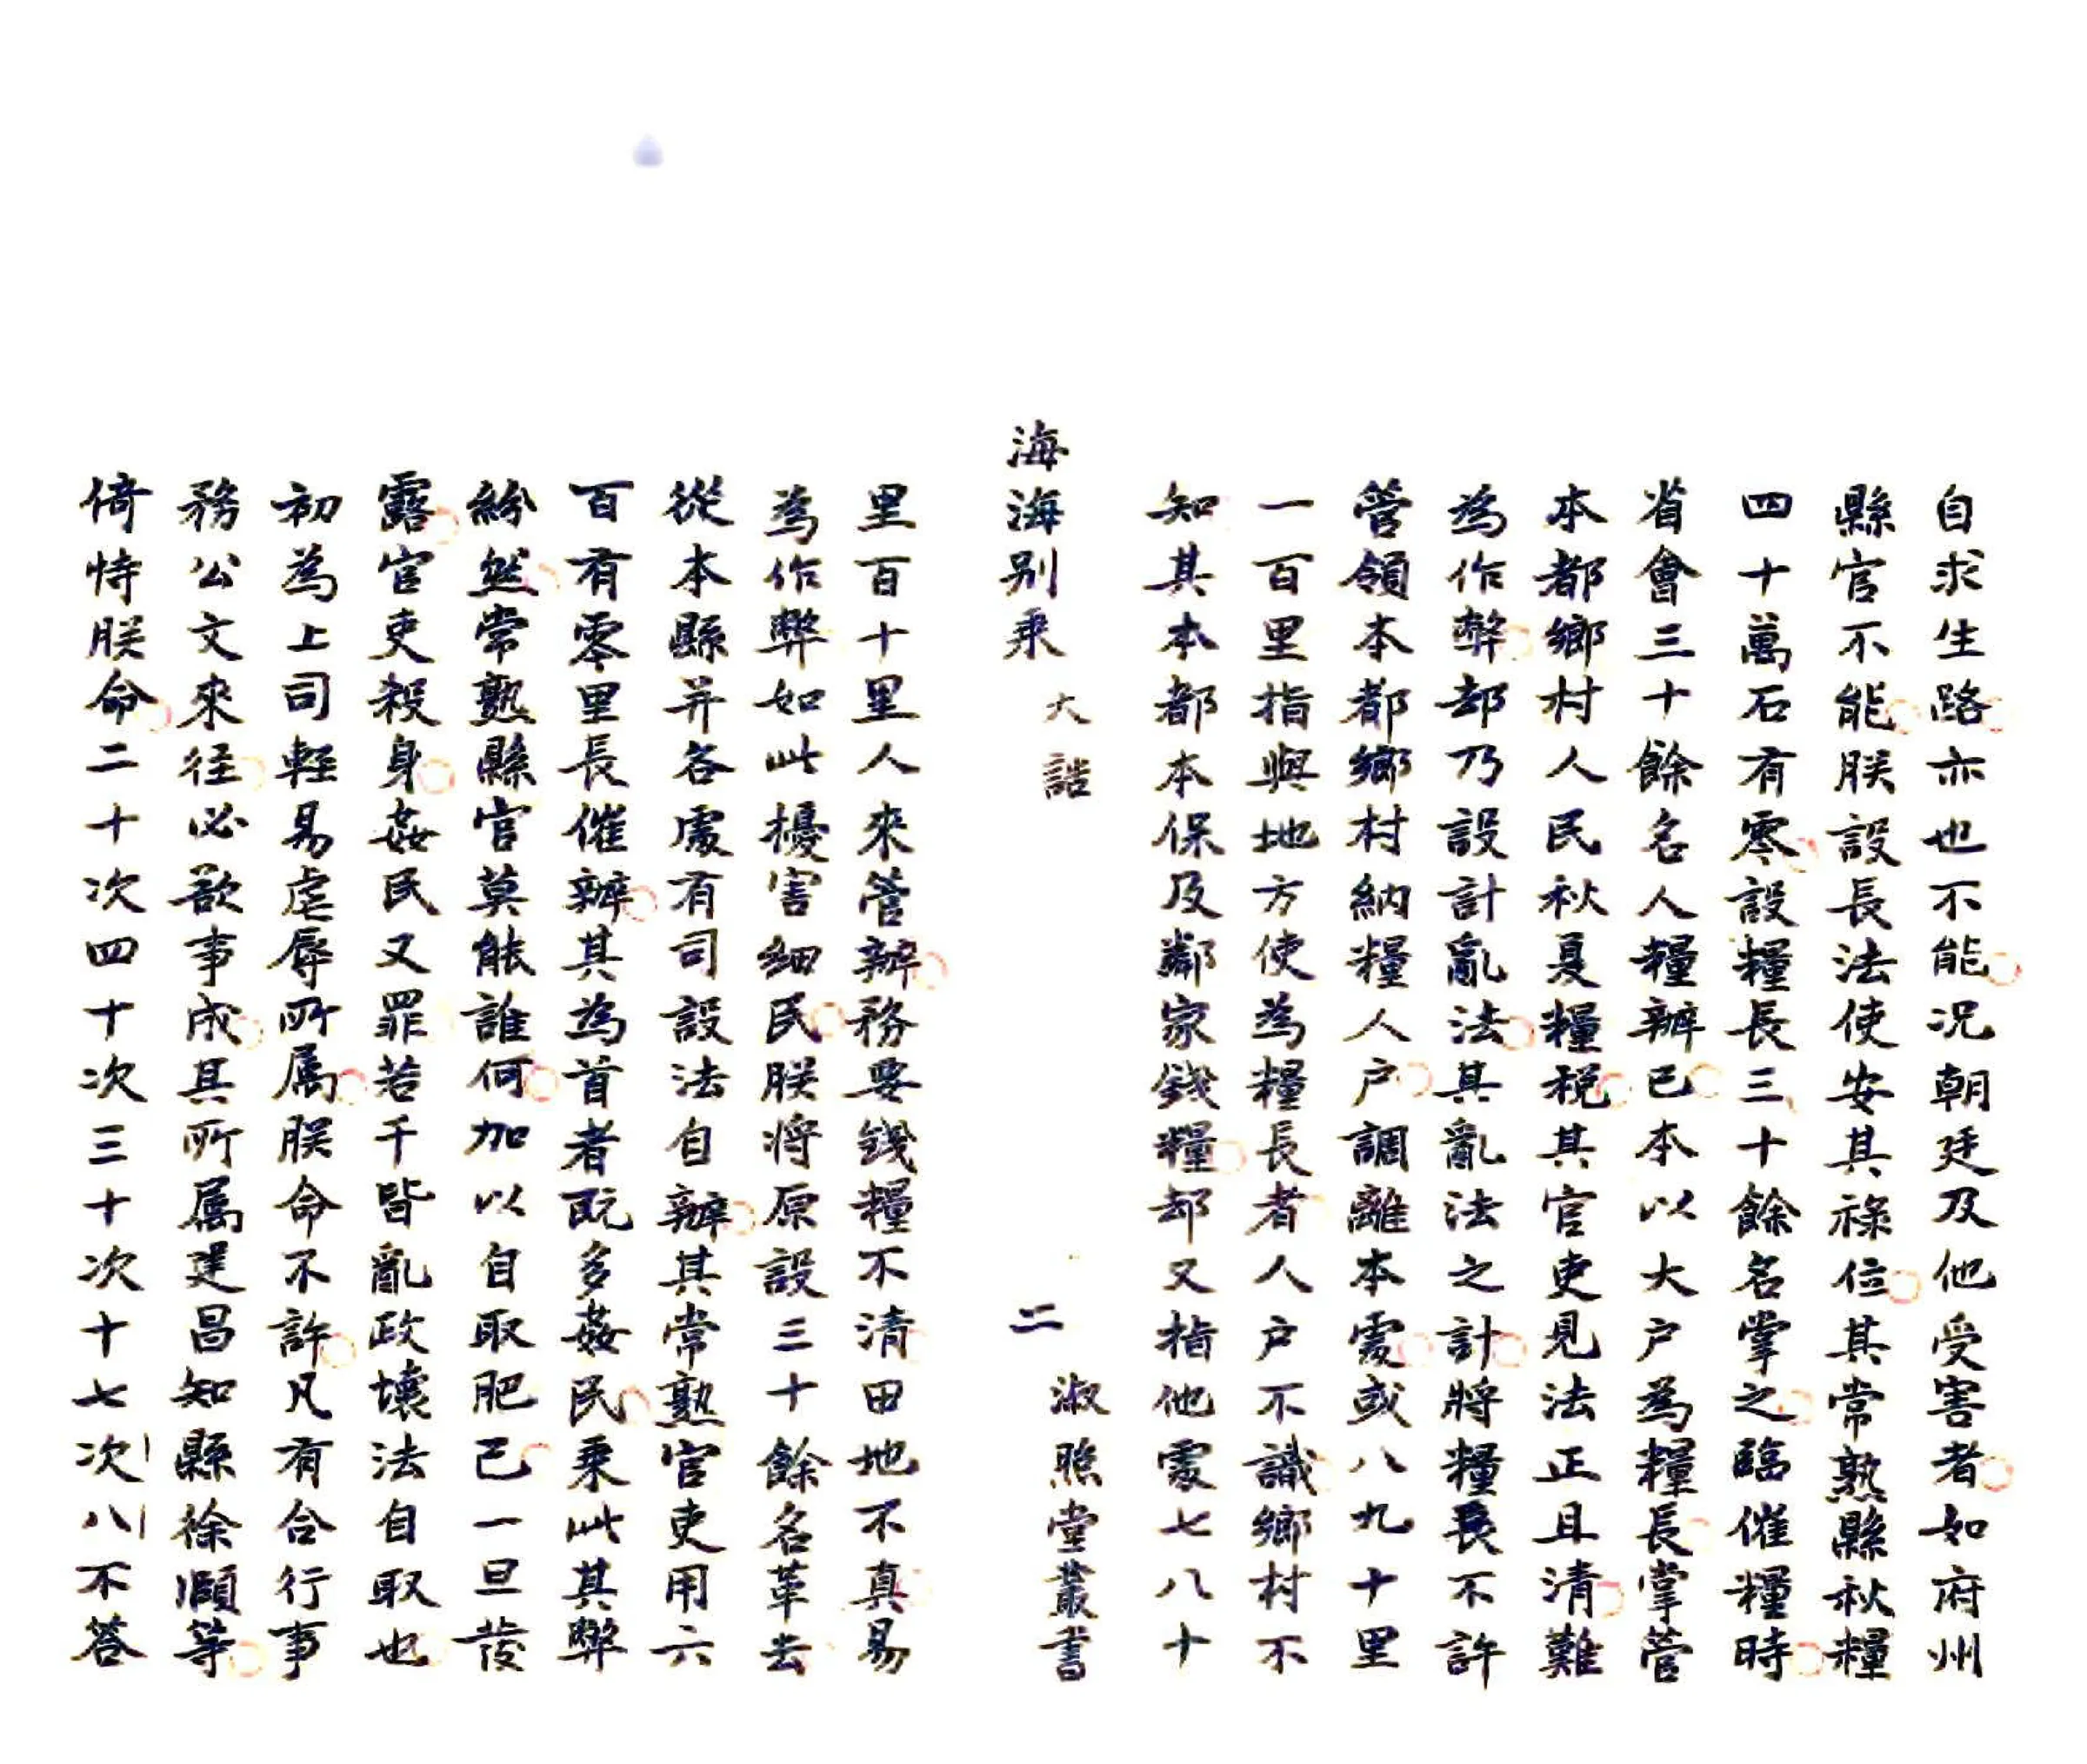 自求生路亦也不能況朝廷及他受害者如府州
縣官不能朕設長法使安其祿位其常熟縣秋糧
四十萬石有零設糧長三十餘名掌之臨催糧時
省會三十餘名人糧辦已本以大户為糧長掌管
本都鄉村人民秋夏糧稅其官吏見法正且清難
為作弊却乃設計亂法其亂法之計將糧長不許
管領本都鄉村納糧人户調離本處或八九十里
一百里指與地方使為糧長者人户不識鄉村不
知其本都本保及鄰家錢糧却又指他處七八十
海海别乘 大誥 二 淑照堂叢書
里百十里人來管辦務要錢糧不清田地不真易
為作弊如此擾害細民朕將原設三十餘名革去
從本縣并各處有司設法自辦其常熟官吏用六
百有零里長催辦其為首者既多姦民乘此其弊
紛然常熟縣官莫能誰何加以自取肥己一旦發
露官吏殺身姦民又罪若干皆亂政壞法自取也
初為上司輕易虐辱所属朕命不許凡有合行事
務公文來徃必欲事成其所属建昌知縣徐頥等
倚恃朕命二十次四十次三十次十七次八不答